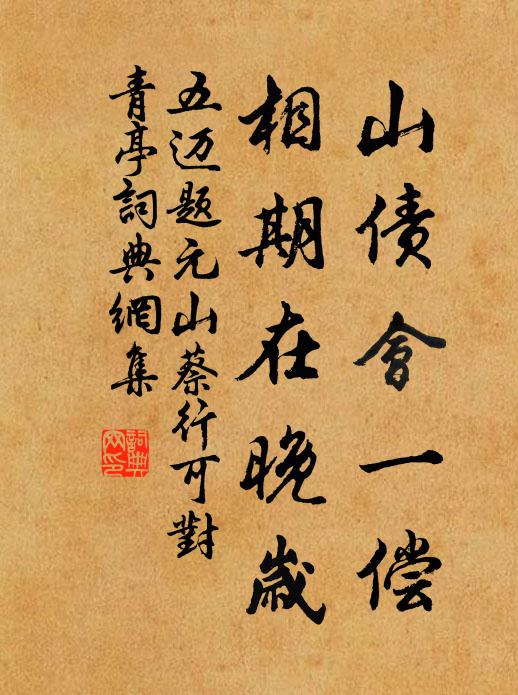 山债會一偿
相期在晚歲
五迈题元山蔡行可對
青亭詞典網集
詞典网印